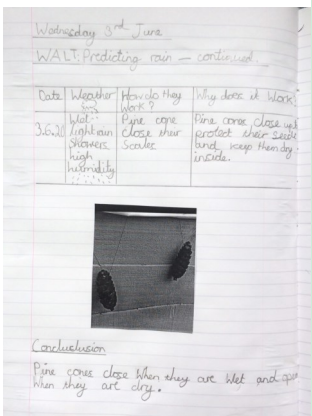 Wednesday 3rd June
WALT: Predicting rain – continued.
Date Weather How do they work? Why does it work?
3.6.20 Wet light rain showers high humidity
Pine cone close their scales
Pine cones close up protect their seeds and keep them dry inside.
Concluslusion
Pine cones close when they are wet and open
when they are dry.